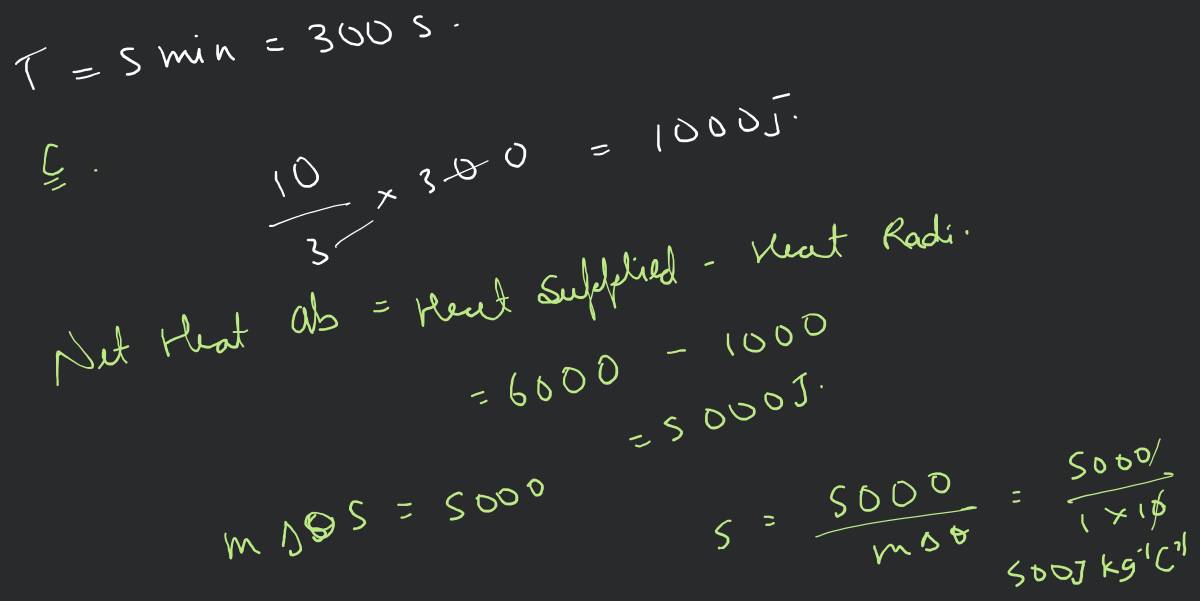 T = 5 min = 300 s.
C.
10/3 × 300 = 1000J.
Net Heat ab = Heat Supplied - Heat Radi.
= 6000 - 1000
= 5000J.
m Δθ S = 5000
S = 5000/mΔθ = 5000/1×10
500J kg⁻¹C⁻¹